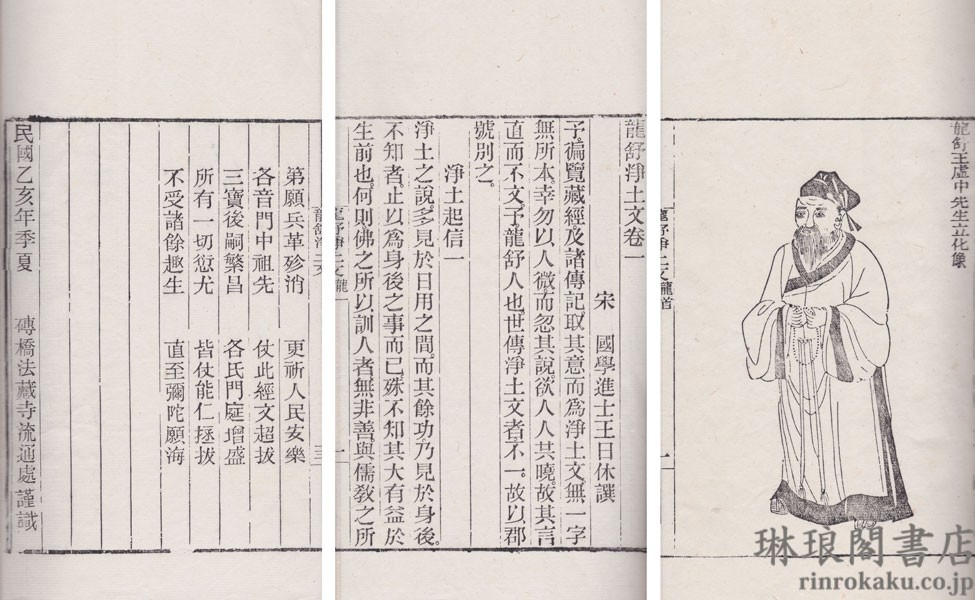 龍舒王虛中先生立化象
龍舒淨土文卷一
宋　國學進士王日休譔
予徧覽藏經及諸傳記取其意而爲淨土文。無一字
無所本。幸勿以人微而忽其說。欲人人共曉。故其言
直而不文。予龍舒人也。世傳淨土文者不一。故以郡
號別之。
淨土起信一
淨土之說。多見於日用之間。而其餘功乃見於身後。
不知者。止以爲身後之事而已。殊不知其大有益於
生前也。何則佛之所以訓人者無非善。與儒敎之所
第願兵革殄消　更祈人民安樂
各音門中祖先　仗此經文超拔
三寶後嗣繁昌　各氏門庭增盛
所有一切愆尤　皆仗能仁拯拔
不受諸餘趣生　直至彌陀願海
民國乙亥年季夏　磚橋法藏寺流通處謹識
琳琅閣書店
rinrokaku.co.jp